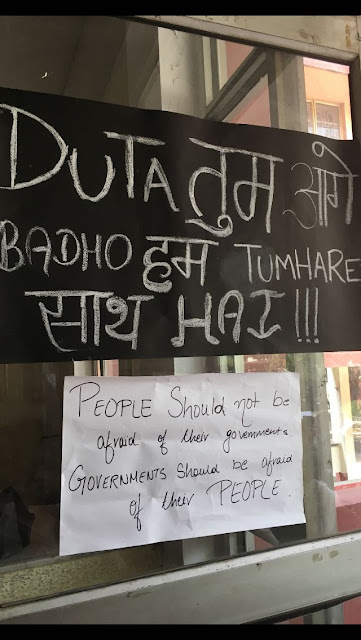 DUTA तुम आगे
BADHO हम TUMHARE
साथ HAI !!!
PEOPLE Should not be
afraid of their governments.
GOVERNMENTS Should be afraid
of their PEOPLE.